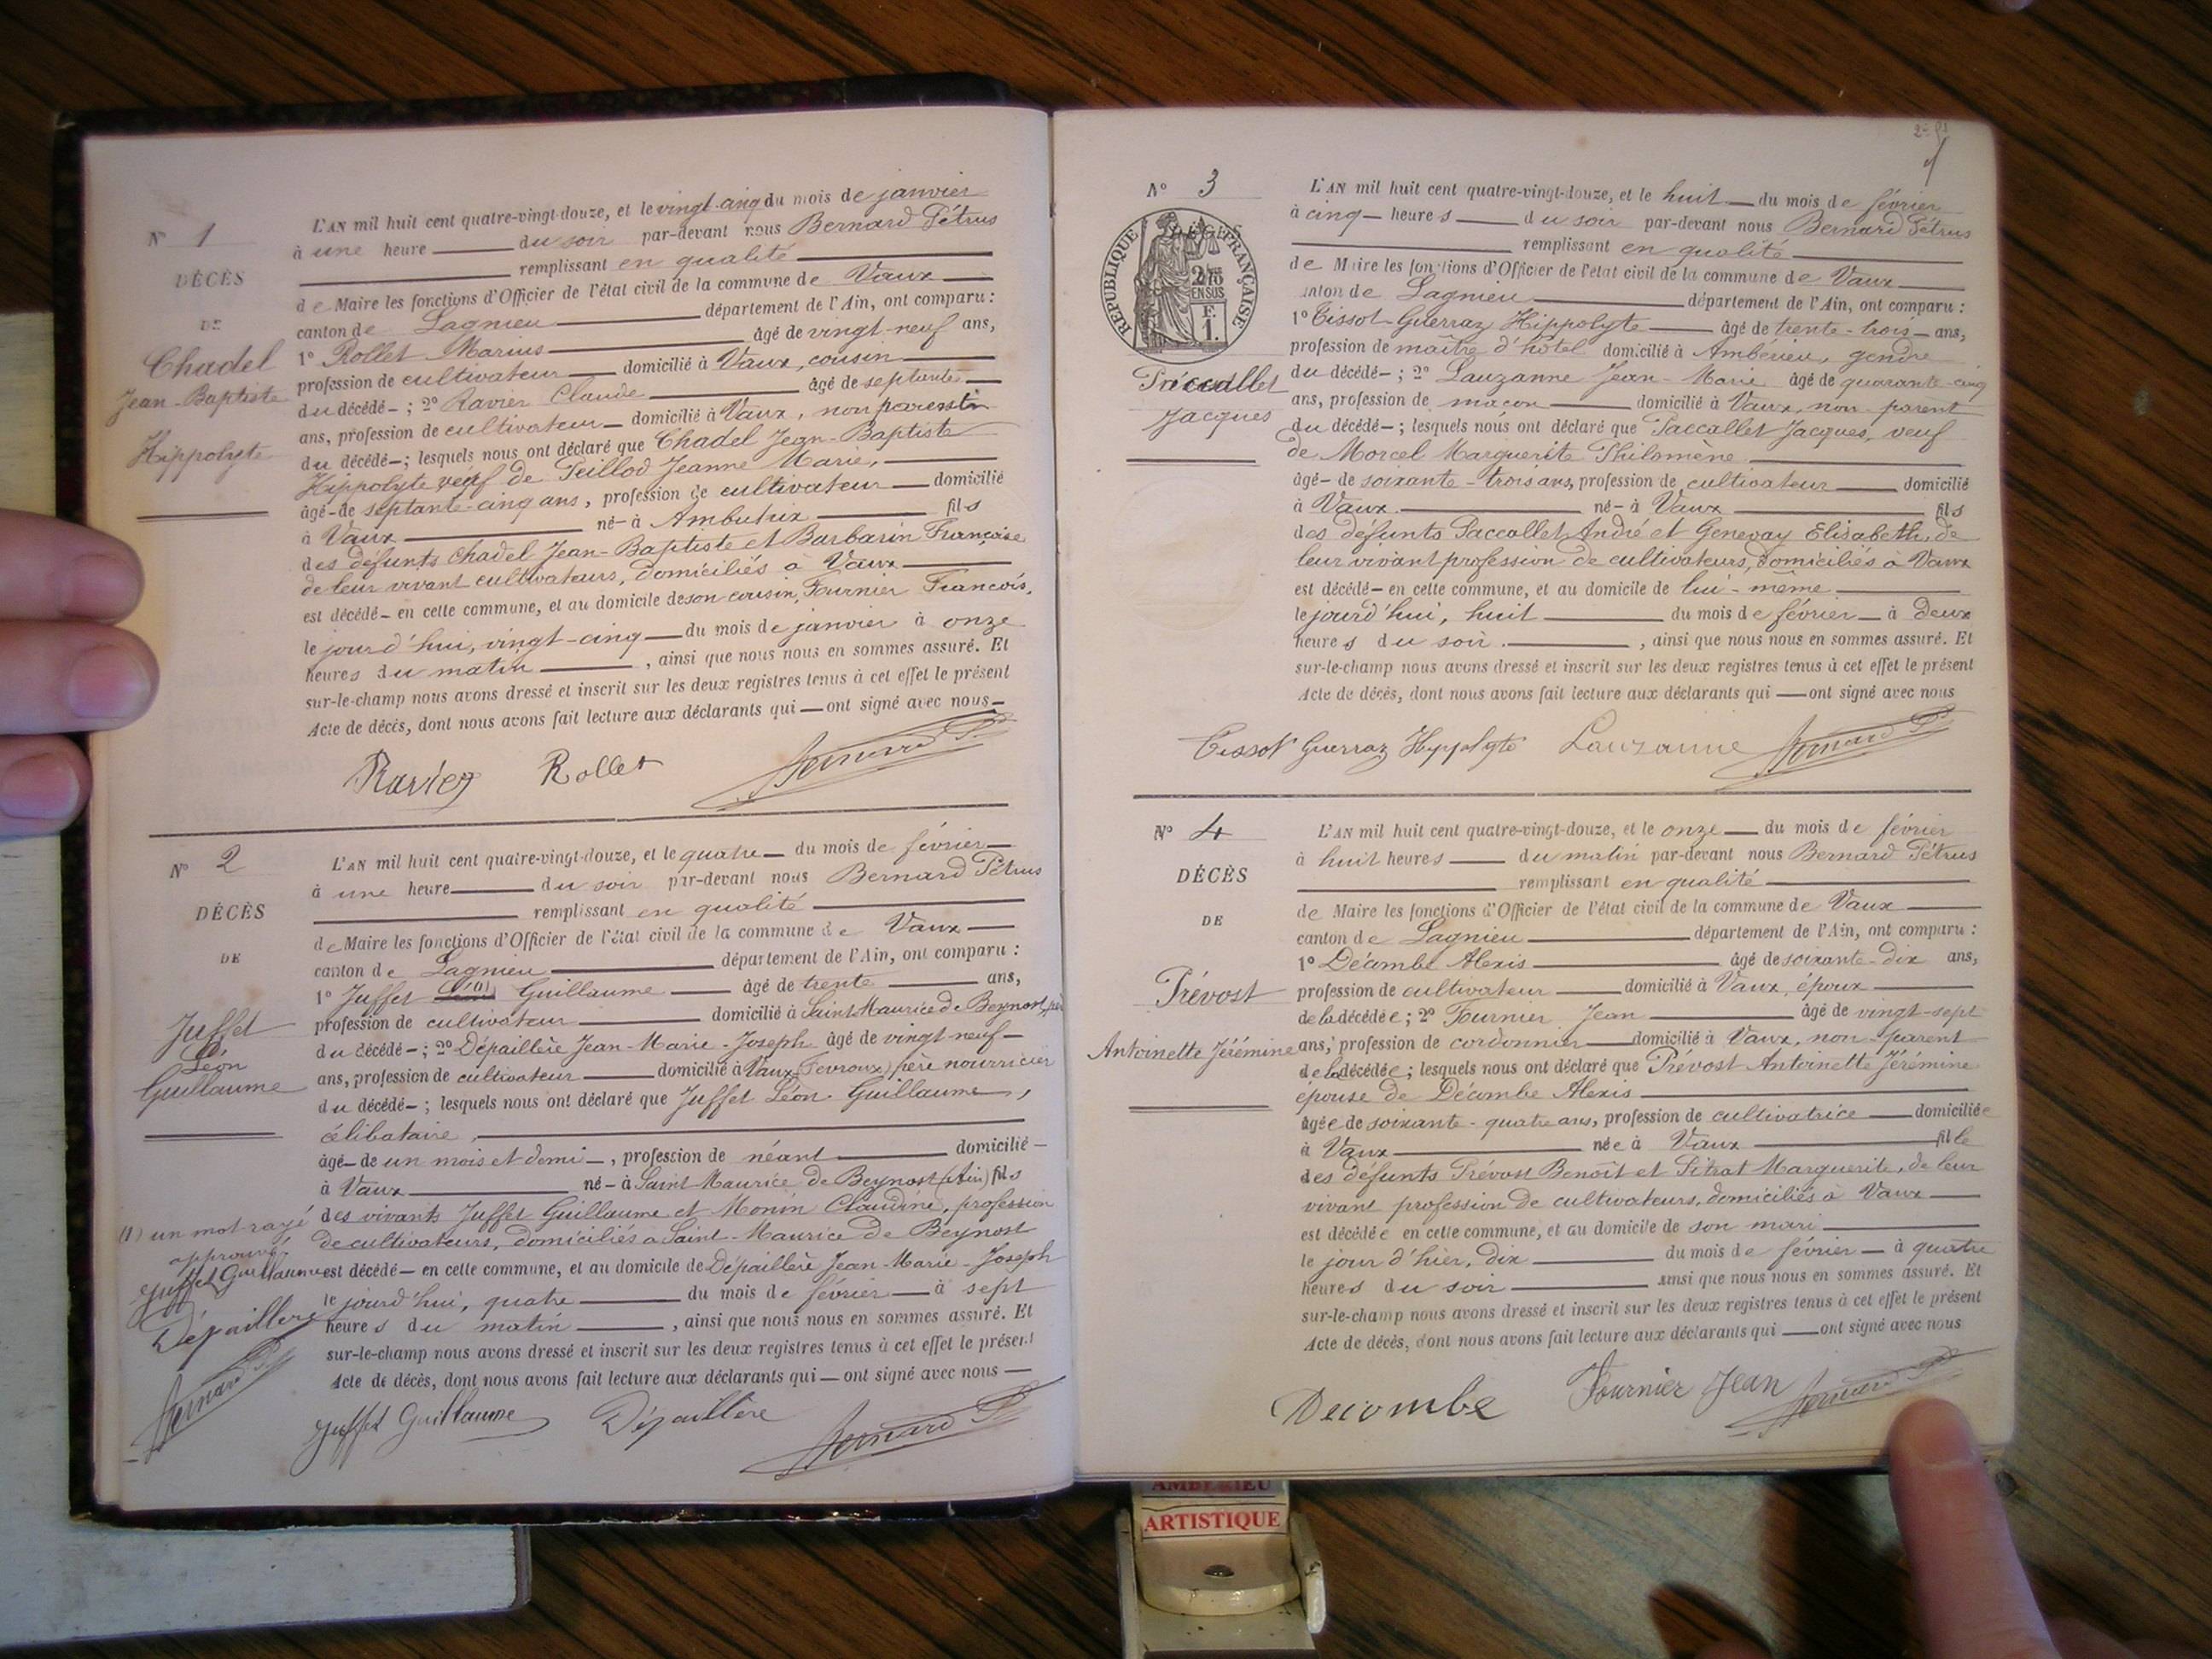 N° 1
DÉCÈS
DE
Chadel
Jean-Baptiste
Hippolyte
L'AN mil huit cent quatre-vingt-douze, et le vingt-cinq du mois de janvier
à une heure du soir par-devant nous Bernard Pétrus
remplissant en qualité
de Maire les fonctions d'Officier de l'état civil de la commune de Vaux
canton de Lagnieu département de l'Ain, ont comparu :
1° Rollet Marius âgé de vingt-neuf ans,
profession de cultivateur domicilié à Vaux, cousin
du décédé ; 2° Ravier Claude âgé de septante
ans, profession de cultivateur domicilié à Vaux, non parent
du décédé ; lesquels nous ont déclaré que Chadel Jean-Baptiste
Hippolyte veuf de Teillod Jeanne Marie,
âgé de septante-cinq ans, profession de cultivateur domicilié
à Vaux né à Ambutrix fils
des défunts Chadel Jean-Baptiste et Barbarin Françoise
de leur vivant cultivateurs, domiciliés à Vaux
est décédé en cette commune, et au domicile de son cousin, Fournier François,
le jourd'hui, vingt-cinq du mois de janvier à onze
heures du matin , ainsi que nous nous en sommes assuré. Et
sur-le-champ nous avons dressé et inscrit sur les deux registres tenus à cet effet le présent
Acte de décès, dont nous avons fait lecture aux déclarants qui ont signé avec nous
Ravier Rollet Bernard P.
N° 2
DÉCÈS
DE
Juffet
Léon
Guillaume
L'AN mil huit cent quatre-vingt-douze, et le quatre du mois de février
à une heure du soir par-devant nous Bernard Pétrus
remplissant en qualité
de Maire les fonctions d'Officier de l'état civil de la commune de Vaux
canton de Lagnieu département de l'Ain, ont comparu :
1° Juffet Léon (1) Guillaume âgé de trente ans,
profession de cultivateur domicilié à Saint Maurice de Beynost, père
du décédé ; 2° Dépaillère Jean-Marie-Joseph âgé de vingt-neuf
ans, profession de cultivateur domicilié à Vaux (Fevroux) père nourricier
du décédé ; lesquels nous ont déclaré que Juffet Léon Guillaume,
célibataire,
âgé de un mois et demi, profession de néant domicilié
à Vaux né à Saint Maurice de Beynost (Ain) fils
des vivants Juffet Guillaume et Monin Claudine, profession
de cultivateurs, domiciliés à Saint-Maurice de Beynost
est décédé en cette commune, et au domicile de Dépaillère Jean-Marie-Joseph
le jourd'hui, quatre du mois de février à sept
heures du matin , ainsi que nous nous en sommes assuré. Et
sur-le-champ nous avons dressé et inscrit sur les deux registres tenus à cet effet le présent
Acte de décès, dont nous avons fait lecture aux déclarants qui ont signé avec nous
(1) un mot rayé
approuvé,
Juffet Guillaume
Dépaillère
Bernard P.
Juffet Guillaume Dépaillère Bernard P.
N° 3
RÉPUBLIQUE FRANÇAISE
2/10
EN SUS
F.
1.
Jacques
L'AN mil huit cent quatre-vingt-douze, et le huit du mois de février
à cinq heures du soir par-devant nous Bernard Pétrus
remplissant en qualité
de Maire les fonctions d'Officier de l'état civil de la commune de Vaux
canton de Lagnieu département de l'Ain, ont comparu :
1° Tissot-Guerraz Hippolyte âgé de trente-trois ans,
profession de maître d'hôtel domicilié à Ambérieu, gendre
du décédé ; 2° Lauzanne Jean-Marie âgé de quarante-cinq
ans, profession de maçon domicilié à Vaux, non parent
du décédé ; lesquels nous ont déclaré que Paccallet Jacques, veuf
de Morcel Marguerite Philomène
âgé de soixante-trois ans, profession de cultivateur domicilié
à Vaux né à Vaux fils
des défunts Paccallet André et Genevay Elisabeth, de
leur vivant profession de cultivateurs, domiciliés à Vaux
est décédé en cette commune, et au domicile de lui-même
le jourd'hui, huit du mois de février à deux
heures du soir. , ainsi que nous nous en sommes assuré. Et
sur-le-champ nous avons dressé et inscrit sur les deux registres tenus à cet effet le présent
Acte de décès, dont nous avons fait lecture aux déclarants qui ont signé avec nous
Tissot Guerraz Hyppolyte Lauzanne Bernard P.
N° 4
DÉCÈS
DE
Prévost
Antoinette Jérémine
L'AN mil huit cent quatre-vingt-douze, et le onze du mois de février
à huit heures du matin par-devant nous Bernard Pétrus
remplissant en qualité
de Maire les fonctions d'Officier de l'état civil de la commune de Vaux
canton de Lagnieu département de l'Ain, ont comparu :
1° Décombe Alexis âgé de soixante-dix ans,
profession de cultivateur domicilié à Vaux, époux
de la décédée ; 2° Fournier Jean âgé de vingt-sept
ans, profession de cordonnier domicilié à Vaux, non parent
de la décédée ; lesquels nous ont déclaré que Prévost Antoinette Jérémine
épouse de Décombe Alexis
âgée de soixante-quatre ans, profession de cultivatrice domiciliée
à Vaux née à Vaux fille
des défunts Prévost Benoît et Pitrat Marguerite, de leur
vivant profession de cultivateurs, domiciliés à Vaux
est décédée en cette commune, et au domicile de son mari
le jour d'hier, dix du mois de février à quatre
heures du soir ainsi que nous nous en sommes assuré. Et
sur-le-champ nous avons dressé et inscrit sur les deux registres tenus à cet effet le présent
Acte de décès, dont nous avons fait lecture aux déclarants qui ont signé avec nous
Decombe Fournier Jean Bernard P.
AMBÉRIEU
ARTISTIQUE